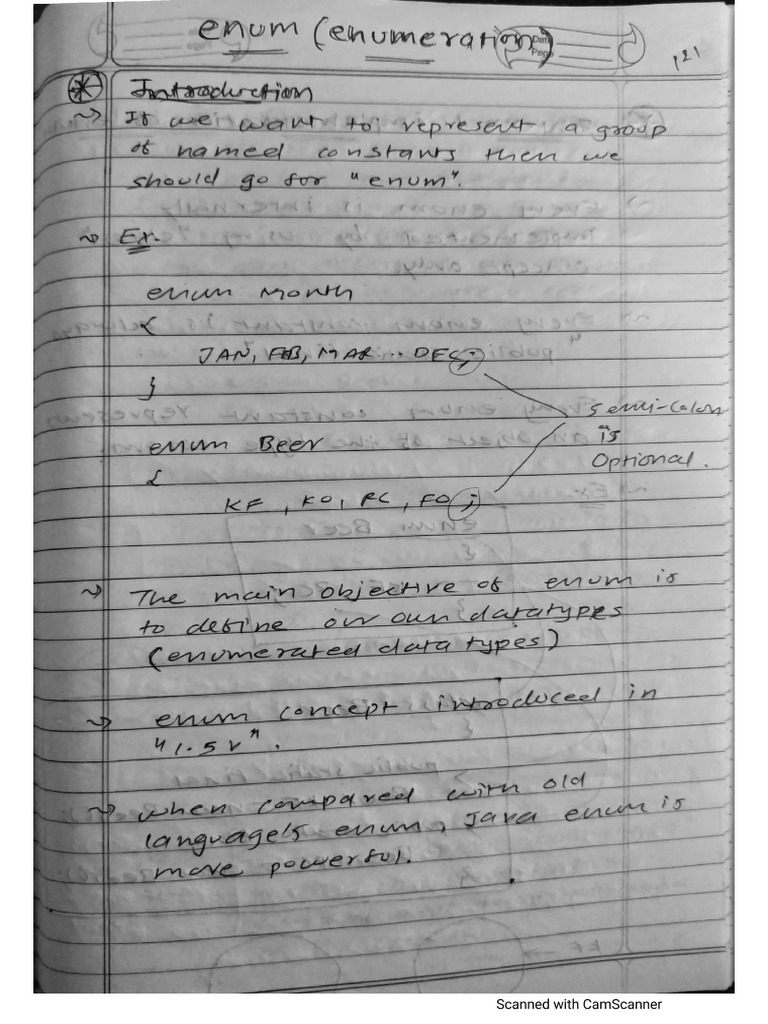 enum (enumeration)
121
Introduction
~> If we want to represent a group
of named constants then we
should go for "enum".
~> Ex.
enum Month
{
JAN, FEB, MAR ... DEC;
}
semi-colon
is
optional.
enum Beer
{
KF, KO, RC, FO;
~> The main objective of enum is
to define our own datatypes
(enumerated data types)
~> enum concept introduced in
"1.5v".
~> when compared with old
language's enum, Java enum is
more powerful.
Scanned with CamScanner